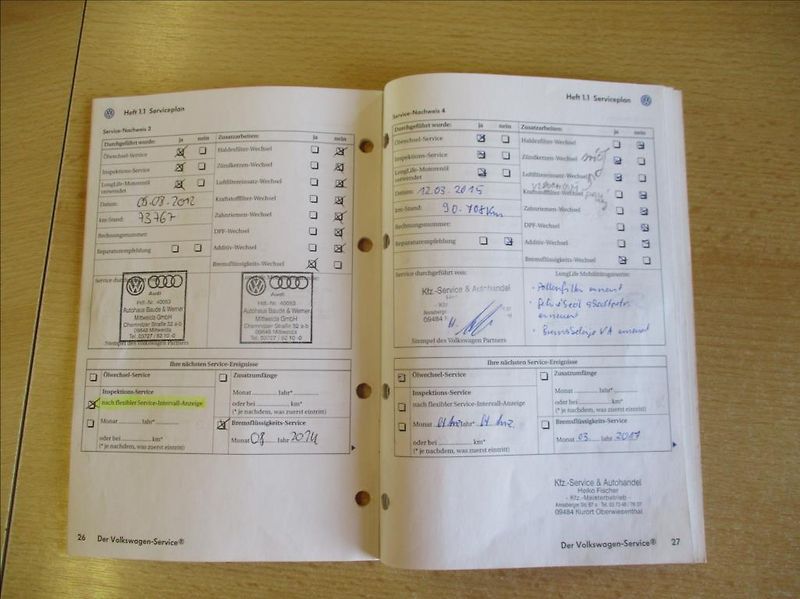 Heft 1.1 Serviceplan
Service-Nachweis 3
Durchgeführt wurde: ja nein
Ölwechsel-Service
Inspektions-Service
LongLife-Motorenöl
verwendet
Datum: 09.08.2012
km-Stand: 73767
Rechnungsnummer:
Reparaturempfehlung
Zusatzarbeiten: ja nein
Haldexfilter-Wechsel
Zündkerzen-Wechsel
Luftfiltereinsatz-Wechsel
Kraftstofffilter-Wechsel
Zahnriemen-Wechsel
DPF-Wechsel
Additiv-Wechsel
Bremsflüssigkeits-Wechsel
Service durchgeführt
Audi
Hdl.-Nr. 40053
Autohaus Baude & Werner
Mittweida GmbH
Chemnitzer Straße 52 a-b
09648 Mittweida
Tel. 03727 / 62 10 -0
Stempel des Volkswagen Partners
Audi
Hdl.-Nr. 40053
Autohaus Baude & Werner
Mittweida GmbH
Chemnitzer Straße 52 a-b
09648 Mittweida
Tel. 03727 / 62 10 -0
Ihre nächsten Service-Ereignisse
Ölwechsel-Service
Inspektions-Service
nach flexibler Service-Intervall-Anzeige
Monat Jahr*
oder bei km*
(* je nachdem, was zuerst eintritt)
Zusatzumfänge
Monat Jahr*
oder bei km*
(* je nachdem, was zuerst eintritt)
Bremsflüssigkeits-Service
Monat 08 Jahr 2014
26 Der Volkswagen-Service®
Heft 1.1 Serviceplan
Service-Nachweis 4
Durchgeführt wurde: ja nein
Ölwechsel-Service
Inspektions-Service
LongLife-Motorenöl
verwendet
Datum: 12.03.2015
km-Stand: 90.708km
Rechnungsnummer:
Reparaturempfehlung
Zusatzarbeiten: ja nein
Haldexfilter-Wechsel
Zündkerzen-Wechsel
Luftfiltereinsatz-Wechsel
Kraftstofffilter-Wechsel
Zahnriemen-Wechsel
DPF-Wechsel
Additiv-Wechsel
Bremsflüssigkeits-Wechsel
Service durchgeführt von:
Kfz.-Service & Autohandel
09484
Stempel des Volkswagen Partners
LongLife Mobilitätsgarantie:
Pollenfilter erneuert
erneuert
VA erneuert
Ihre nächsten Service-Ereignisse
Ölwechsel-Service
Inspektions-Service
nach flexibler Service-Intervall-Anzeige
Monat Jahr*
oder bei km*
(* je nachdem, was zuerst eintritt)
Zusatzumfänge
Monat Jahr*
oder bei km*
(* je nachdem, was zuerst eintritt)
Bremsflüssigkeits-Service
Monat 03 Jahr 2017
Kfz.-Service & Autohandel
Heiko Fischer
- Kfz.-Meisterbetrieb -
09484 Kurort Oberwiesenthal
Der Volkswagen-Service® 27